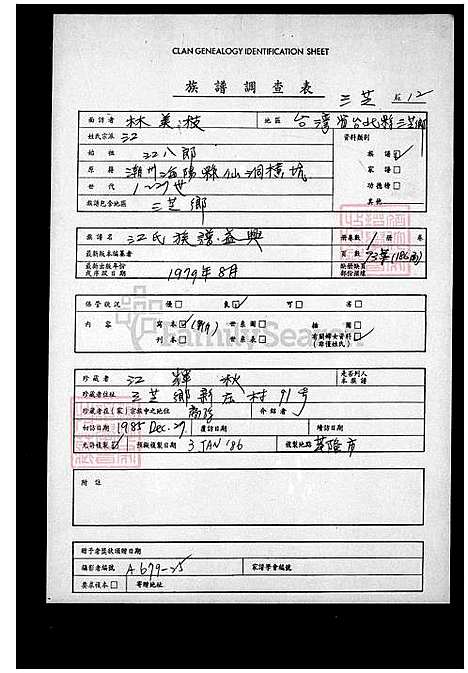 CLAN GENEALOGY IDENTIFICATION SHEET
族譜調查表
三芝 12
面訪者 林美枝 地區 台灣省台北縣三芝鄉
姓氏宗派 江 資料類別
始祖 江八郎 族譜☑
原籍 潮州海陽縣仙洞橫坑 家譜□
世代 1-27世 功德榜□
族譜包含地區 三芝鄉 其他
族譜名 江氏族譜·盛興 冊卷數 1 冊 卷
最新版本編纂者 頁數 93葉(186面)
最新出版年份或序跋日期 1979年8月 缺冊缺頁部份描繪
保管狀況 優□ 良☑ 可□ 劣□
內容 寫本☑ 世系圖□ 插圖□
刊本□ 世系表□ 有關婦女資料(非僅姓氏)
珍藏者 江輝秋 是否列入本族譜
珍藏者住址 三芝鄉新庄村91号
珍藏者在(家)宗族中之地位 裔孫 介紹者
初訪日期 1985 Dec. 27. 覆訪日期 增訪日期
允許複製☑ 預擬複製日期 3 JAN '86 複製地點 基隆市
附註
贈予者獎狀頒贈日期
攝影者編號 A679-25 家譜學會編號
要求複本□ 寄贈地址
FamilySearch